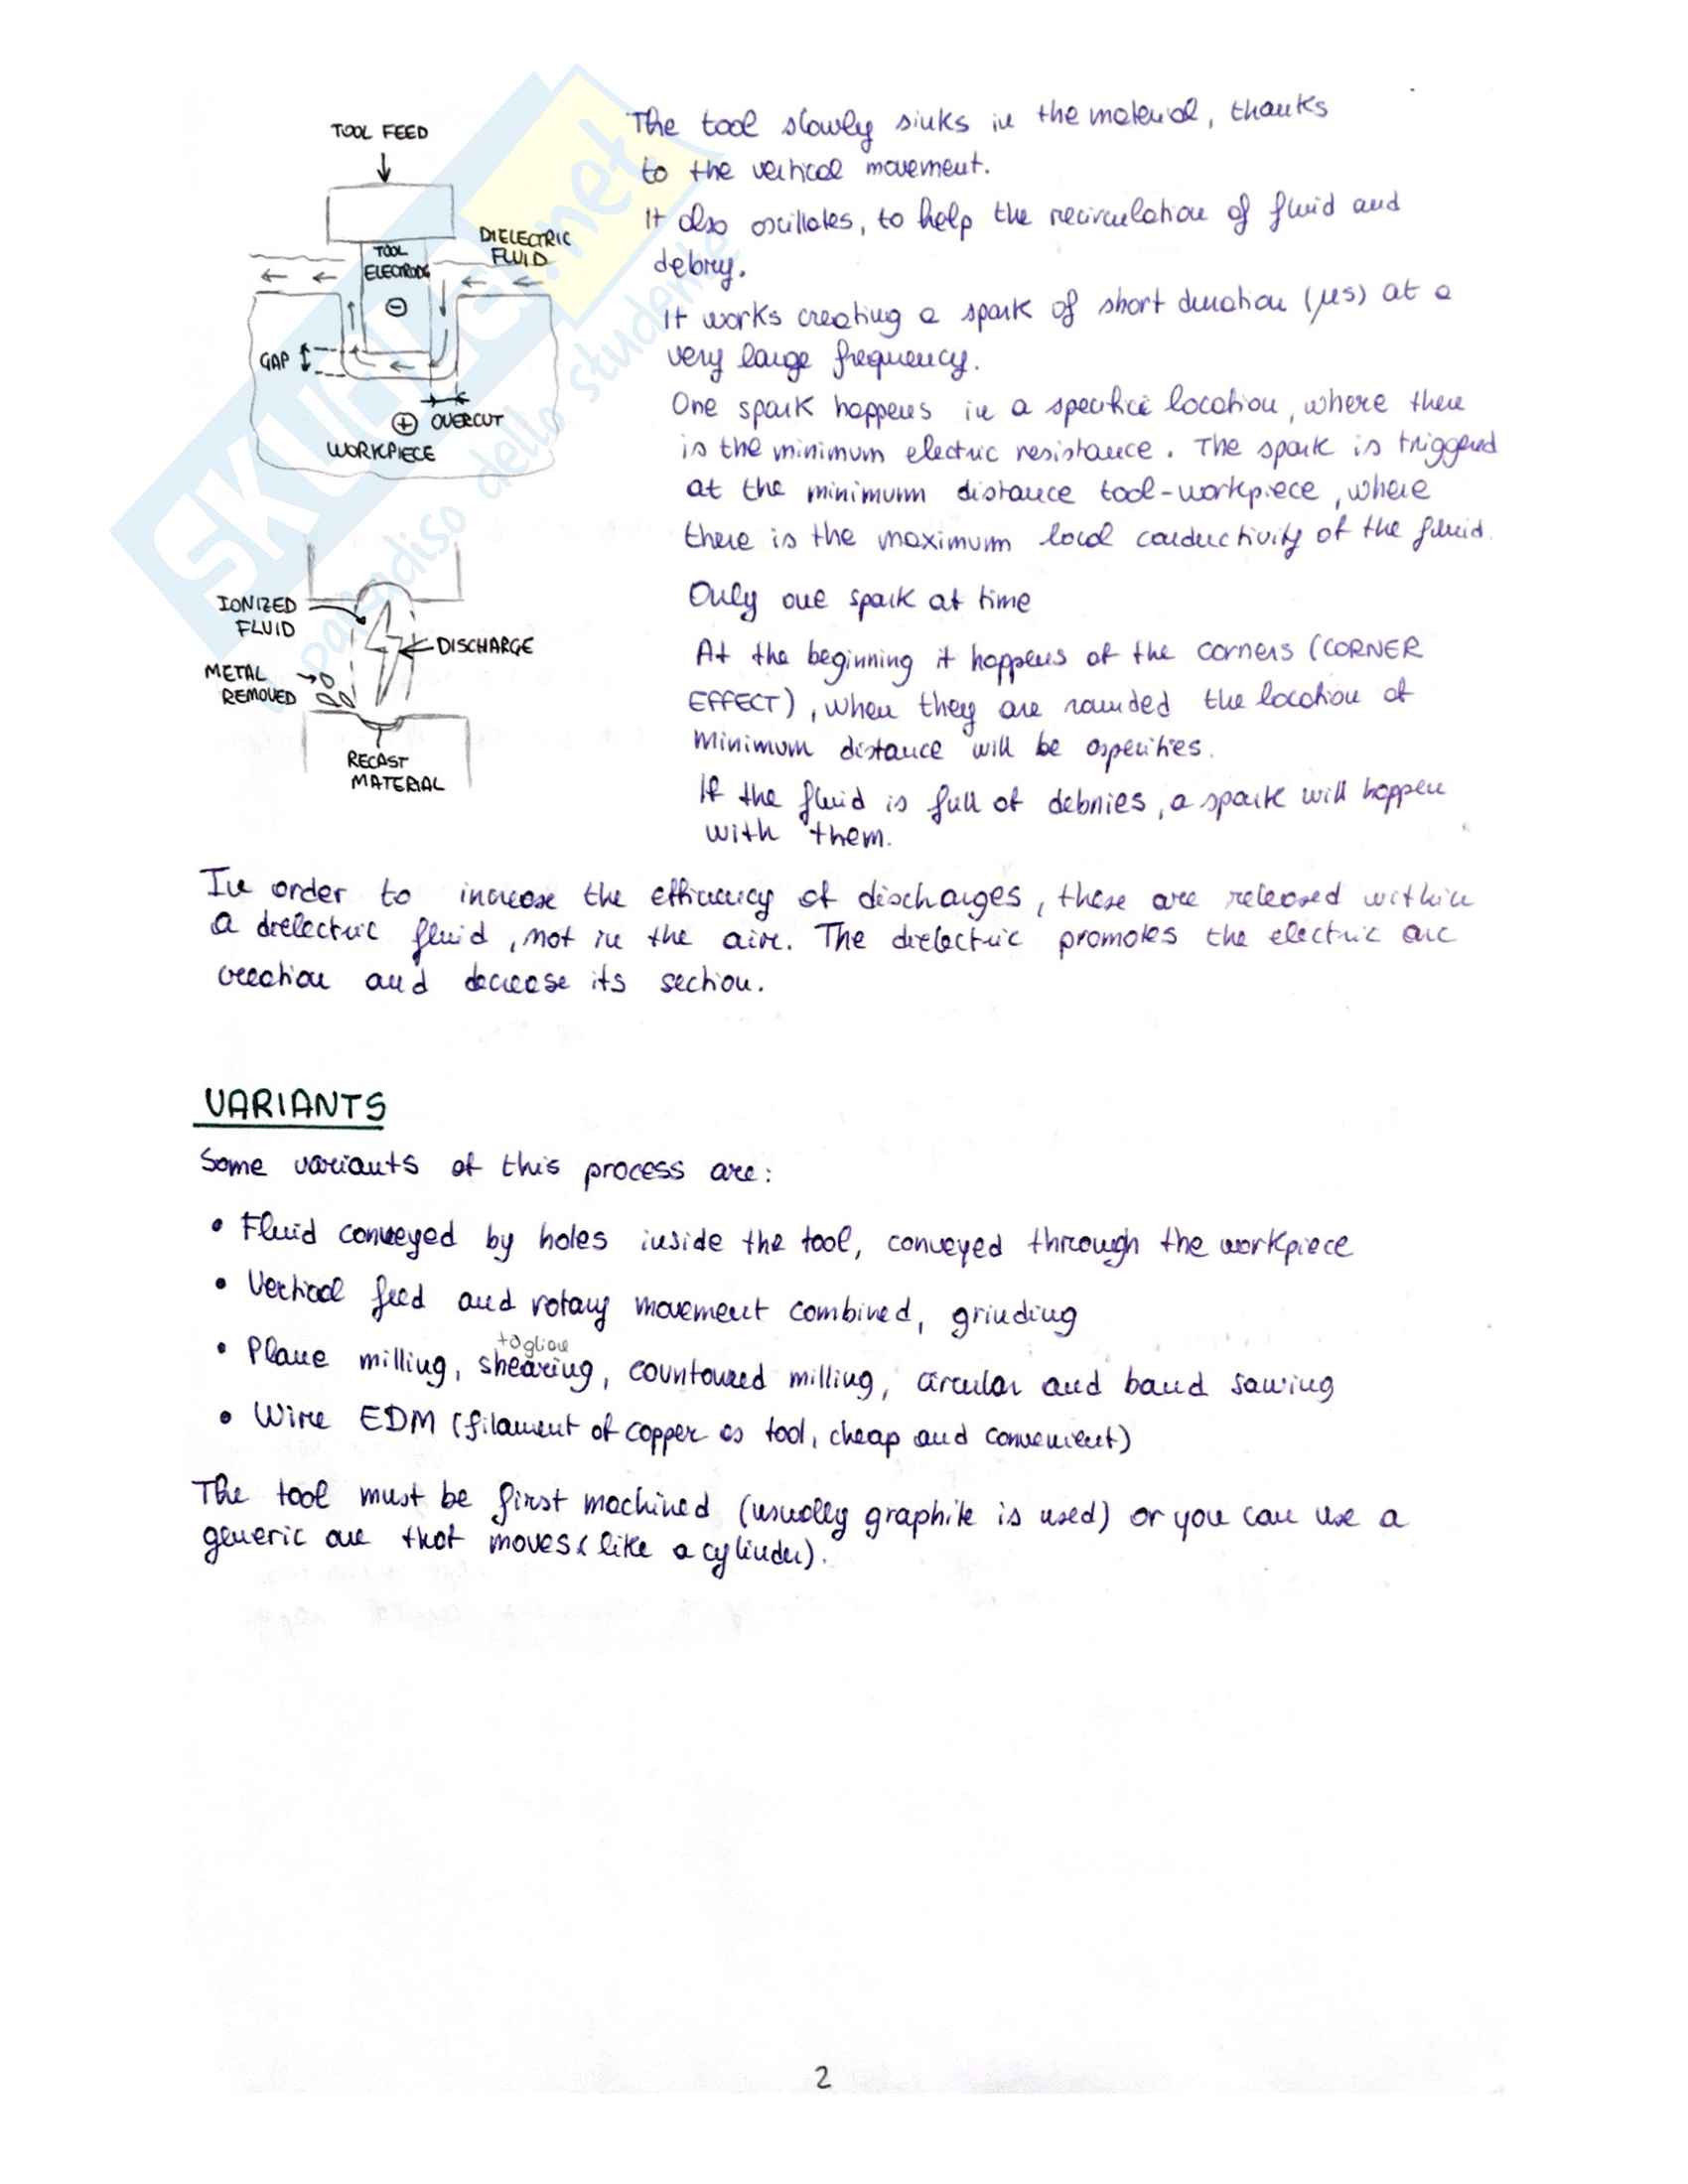 TOOL FEED
TOOL
ELECTRODE
DIELECTRIC
FLUID
GAP
OVERCUT
WORKPIECE
IONIZED
FLUID
DISCHARGE
METAL
REMOVED
RECAST
MATERIAL
The tool slowly sinks in the material, thanks
to the vertical movement.
It also oscillates, to help the recirculation of fluid and
debry.
It works creating a spark of short duration (μs) at a
very large frequency.
One spark happens in a specific location, where there
is the minimum electric resistance. The spark is triggered
at the minimum distance tool-workpiece, where
there is the maximum local conductivity of the fluid.
Only one spark at time
At the beginning it happens at the corners (CORNER
EFFECT), when they are rounded the location of
minimum distance will be asperities.
If the fluid is full of debries, a spark will happen
with them.
In order to increase the efficiency of discharges, these are released within
a dielectric fluid, not in the aire. The dielectric promotes the electric arc
creation and decrease its section.
VARIANTS
Some variants of this process are:
• Fluid conveyed by holes inside the tool, conveyed through the workpiece
• Vertical feed and rotary movement combined, grinding
tagliare
• Plane milling, shearing, countoured milling, circular and band sawing
• Wire EDM (filament of copper as tool, cheap and convenient)
The tool must be first machined (usually graphite is used) or you can use a
generic one that moves (like a cylinder).
2
SKUOLA.net
paradiso dello studente